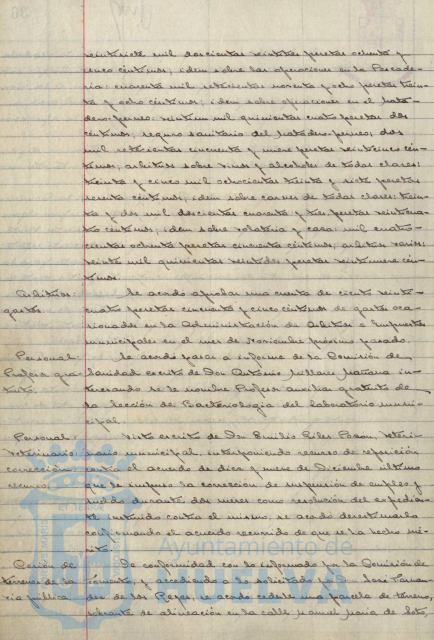 veintisiete mil doscientas veintitres pesetas ochenta y
cinco centimos; idem sobre las operaciones en la Pescade-
ria: cuarenta mil setecientas noventa y ocho pesetas trein-
ta y ocho centimos; idem sobre operaciones en el mata-
dero-porcino: mil quinientas cuatro pesetas dos
centimos; seguro sanitario del matadero-porcino; dos
mil setecientas cincuenta y nueve pesetas veinticinco cen-
timos; arbitrios sobre vinos y alcoholes de todas clases:
treinta y cinco mil ochocientas treinta y siete pesetas
sesenta centimos; idem sobre carnes de todas clases: trein-
ta y dos mil doscientas cuarenta y tres pesetas veinticua-
tro centimos; idem sobre volateria y caza: mil cuatro-
cientas ochenta pesetas cincuenta centimos; arbitrios varios:
veinte mil quinientas veintidos pesetas veintinueve cen-
timos.
Arbitrios: Se acordó aprobar una cuenta de ciento veinti-
gastos. cuatro pesetas cincuenta y cinco centimos de gastos oca-
sionados en la Administración de Arbitrios e Impuestos
municipales en el mes de Noviembre próximo pasado.
Personal: Se acordó pasar a informe de la Comisión de
Profesor gra- Sanidad escrito de Don Antonio Millane Mariana in-
tuito. teresando se le nombre Profesor auxiliar gratuito de
la Sección de Bacteriologia del laboratorio muni-
cipal.
Personal: Visto escrito de Don Emilio Giles Pason, Veteri-
Veterinario: nario municipal, interponiendo recurso de reposición
corrección contra el acuerdo de diez y nueve de Diciembre último
recurso. que le impuso la corrección de suspensión de empleo y
sueldo durante dos meses como resolución del expedien-
te instruido contra el mismo, se acordó desestimarlo
confirmando el acuerdo recurrido de que se ha hecho mé-
rito.
Cesión de De conformidad con lo informado por la Comisión de
terreno de la Fomento, y accediendo a lo solicitado por D. José Fernan-
via pública. dez de los Reyes, se acordó cederle una parcela de terreno,
sobrante de alineación en la calle Manuel Maria de Soto,
Ayuntamiento de